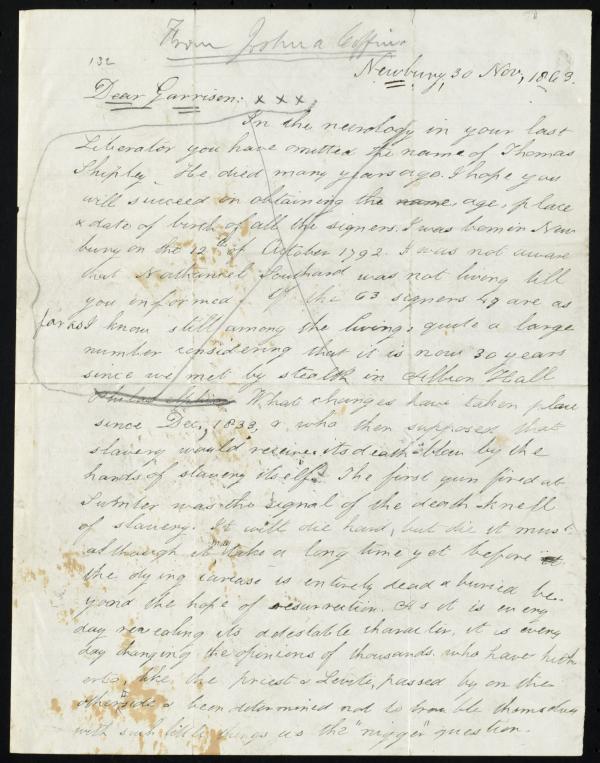 From Joshua Coffin.
132
Newbury, 30 Nov, 1863.
Dear Garrison: x x x
In the necrology in your last
Liberator you have omitted the name of Thomas
Shipley. He died many years ago. I hope you
will succeed in obtaining the name, age, place
& date of birth of all the signers. I was born in New
bury on the 12th of October 1792. I was not aware
that Nathaniel Southard was not living till
you informed. Of the 63 signers 49 are as
far as I know still among the living, quite a large
number considering that it is now 30 years
since we met by stealth in Adelphi Hall
What changes have taken place
since Dec, 1833, & who then supposed that
slavery would receive its death blow by the
hands of slavery itself? The first gun fired at
Sumter was the signal of the death-knell
of slavery. It will die hard, but die it must
although it may take a long time yet before it
the dying carcase is entirely dead & buried be-
yond the hope of resurrection. As it is every
day revealing its detestable character, it is every
day changing the opinions of thousands who have hith
erto, like the priest & Levite, passed by on the
otherside & been determined not to trouble themselves
with such little things as the "nigger" question.